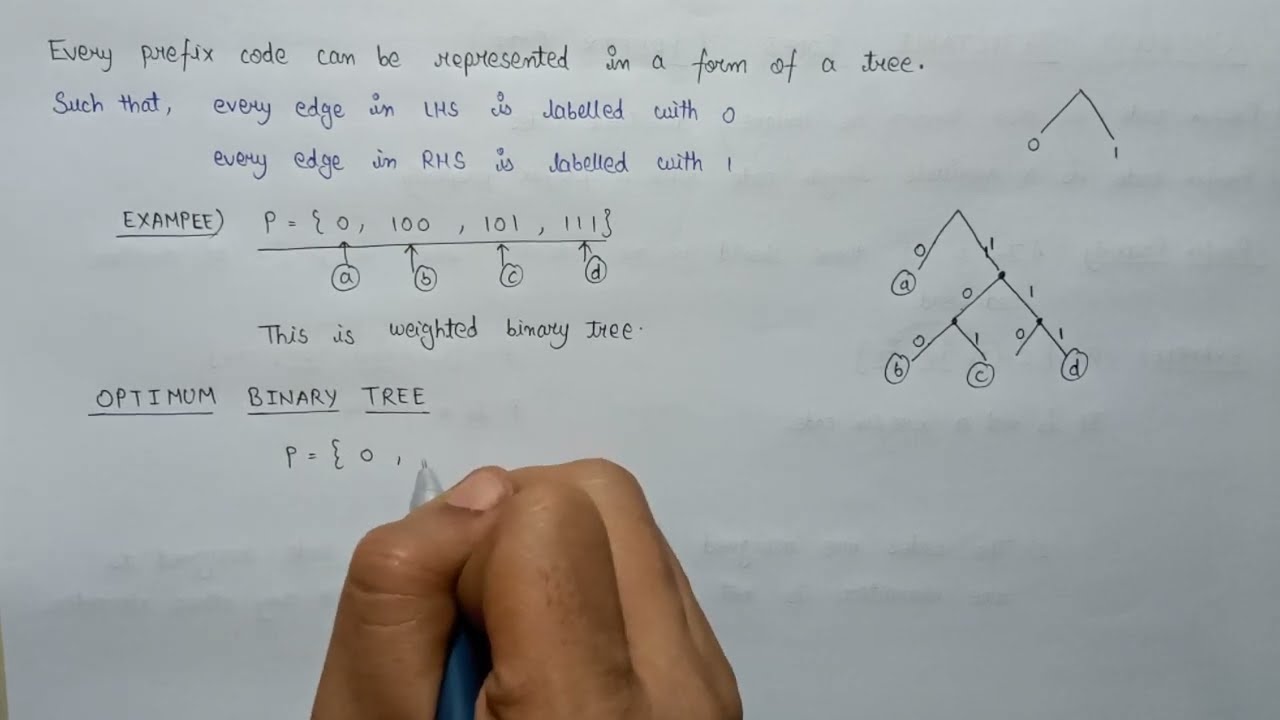 Every prefix code can be represented in a form of a tree.
Such that, every edge in LHS is labelled with 0
every edge in RHS is labelled with 1
0 1
EXAMPEE) P = { 0, 100 , 101 , 111}
a b c d
This is weighted binary tree.
0 1
a
0 1
0 1 0 1
b c d
OPTIMUM BINARY TREE
P = { 0 ,